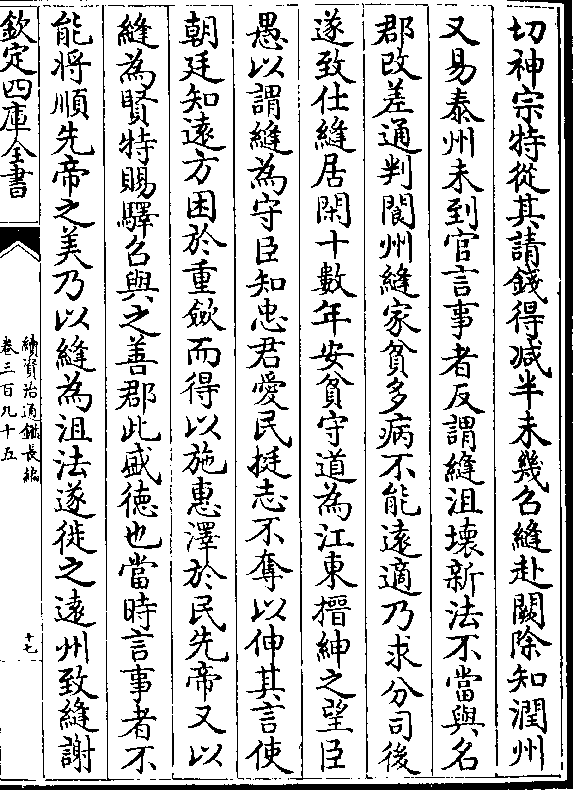 切神宗特從其請錢得减半未幾召縫赴闕除知潤州
又易泰州未到官言事者反謂縫沮壞新法不當與名
郡改差通判閬州縫家貧多病不能遠適乃求分司後
遂致仕縫居閑十數年安貧守道為江東搢紳之望臣
愚以謂縫為守臣知忠君愛民挺志不奪以伸其言使
朝廷知逺方困於重歛而得以施惠澤於民先帝又以
縫為賢特賜驛召與之善郡此盛徳也當時言事者不
能將順先帝之美乃以縫為沮法遂徙之逺州致縫謝
欽定四庫全書
續資治通鑑長編
卷三百九十五
十七